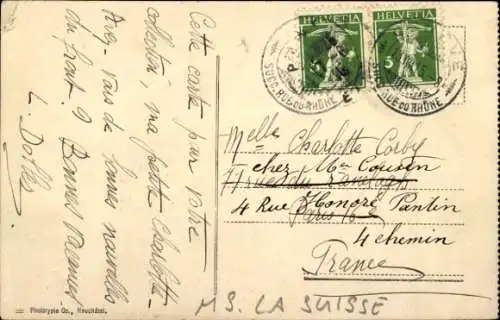 Cette carte pour votre
collection, ma petite Charlotte -
Avez-vous de bonnes nouvelles
du front? Bonnes vacances
L. Dolls
HELVETIA HELVETIA
5 5
SUCC. RUE DU RHÔNE
RUE DU RHÔNE
Melle Charlotte Corby
chez Me Cousin
77 rue du Ranelagh
4 Rue Honoré Pantin
Paris 16e
4 chemin
France
Phototypie Co., Neuchâtel.
M S. LA SUISSE